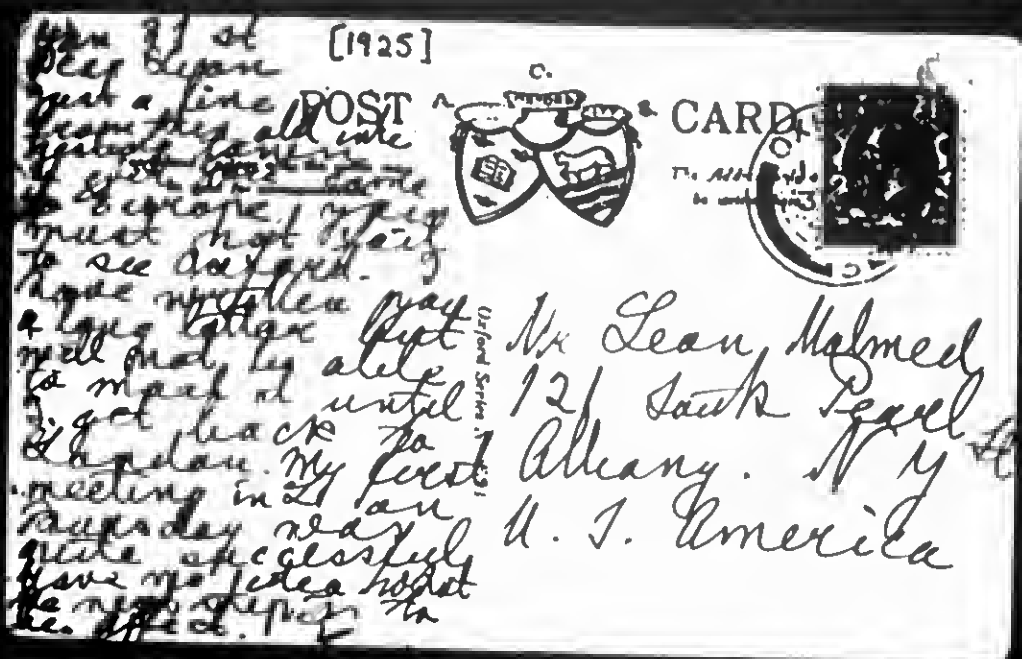 [1925]
Jan 31 st
Dear Leon
Just a line
from this old inte
If you ever come
to Europe, you
must not fail
to see Oxford. I
have written you
a long letter but
will not be able
to mail it until
I get back to
London. My first
meeting in L on
Thursday was
quite successful,
have no idea what
the next step is to
be.
POST CARD
A. C. B.
Oxford Series.
Mr Leon Malmed
121 South Pearl
St
Albany. N Y
U. S. America